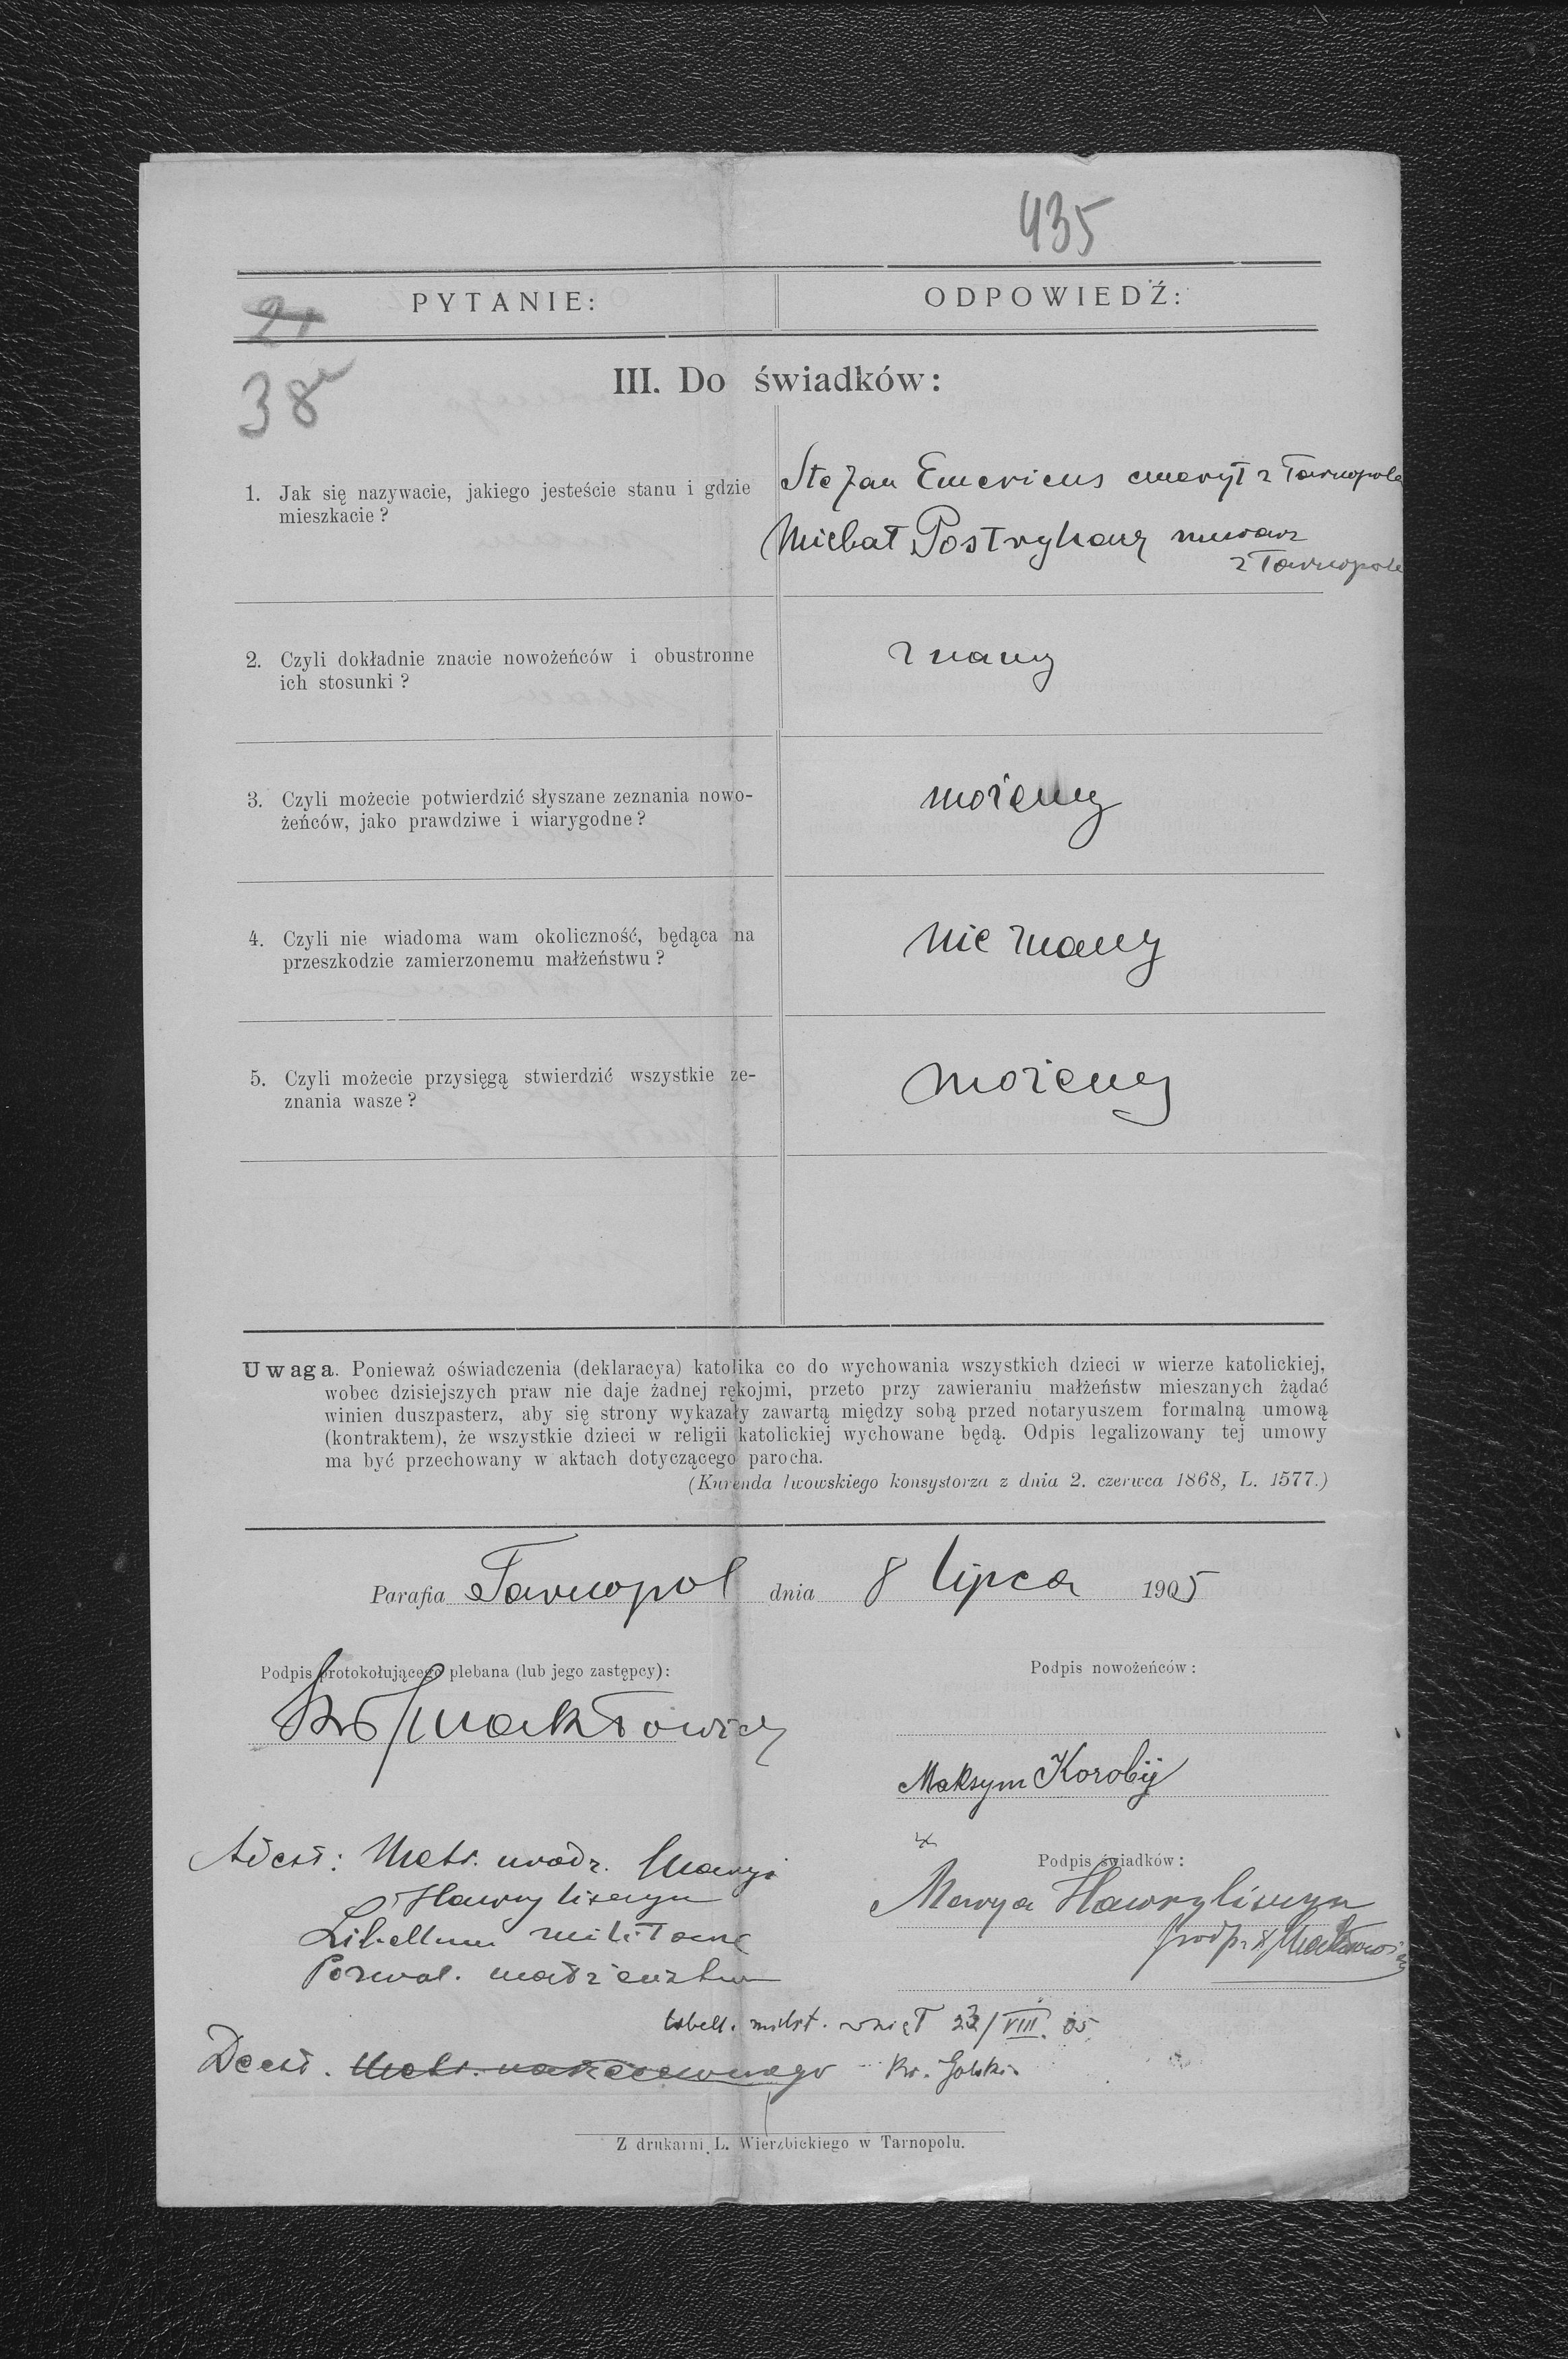 435
PYTANIE: ODPOWIEDŹ:
21
38
III. Do świadków:
1. Jak się nazywacie, jakiego jesteście stanu i gdzie
mieszkacie?
Stefan Emericus emeryt z Tarnopola
Michał Postryhacz murarz
z Tarnopola
2. Czyli dokładnie znacie nowożeńców i obustronne
ich stosunki?
znamy
3. Czyli możecie potwierdzić słyszane zeznania nowo-
żeńców, jako prawdziwe i wiarygodne?
możemy
4. Czyli nie wiadoma wam okoliczność, będąca na
przeszkodzie zamierzonemu małżeństwu?
nie znamy
5. Czyli możecie przysięgą stwierdzić wszystkie ze-
znania wasze?
możemy
Uwaga. Ponieważ oświadczenia (deklaracya) katolika co do wychowania wszystkich dzieci w wierze katolickiej,
wobec dzisiejszych praw nie daje żadnej rękojmi, przeto przy zawieraniu małżeństw mieszanych żądać
winien duszpasterz, aby się strony wykazały zawartą między sobą przed notaryuszem formalną umową
(kontraktem), że wszystkie dzieci w religii katolickiej wychowane będą. Odpis legalizowany tej umowy
ma być przechowany w aktach dotyczącego parocha.
(Kurenda lwowskiego konsystorza z dnia 2. czerwca 1868, L. 1577.)
Parafia Tarnopol dnia 8 lipca 1905
Podpis protokołującego plebana (lub jego zastępcy):
Podpis nowożeńców:
Maksym Korobij
Adest: Metr. urodz. Maryi
Hawryliszyn
Libellum militare
Pozwol. małżeństwa
Podpis świadków:
Marya Hawryliszyn
libell. milit. wziął 23/VIII. 05
Deest. Metr.
Z drukarni L. Wierzbickiego w Tarnopolu.